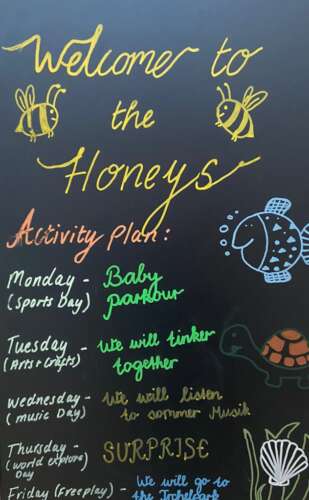 Welcome to
the
Honeys
Activity Plan:
Monday - Baby
(Sports Day) parkour
Tuesday - We will tinker
(Arts + Crafts) together
Wednesday - We will listen
(music Day) to sommer Musik
Thursday - SURPRISE
(World explore
Day
Friday (Freeplay) - We will go to
the